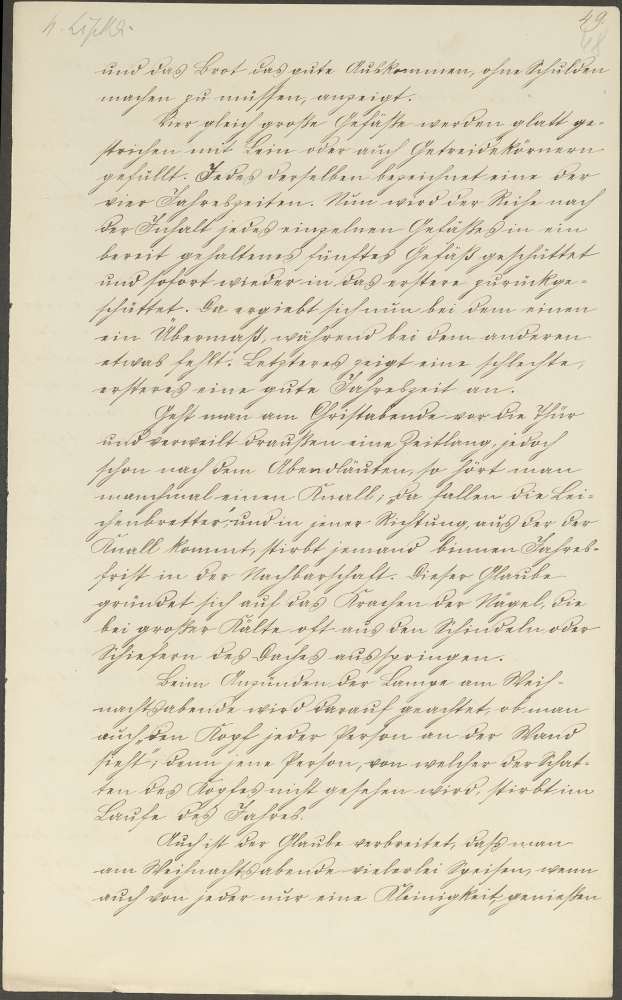 49
48
und das Brot das gute Auskommen, ohne Schulden
machen zu müssen, anzeigt.
Vier gleich große Gefäße werden glatt ge-
strichen mit Lein oder auch Getreidekörnern
gefüllt. Jedes derselben bezeichnet eine der
vier Jahreszeiten. Nun wird der Reihe nach
der Inhalt jedes einzelnen Gefäßes in ein
bereit gehaltenes fünftes Gefäß geschüttet
und sofort wieder in das erstere zurückge-
schüttet. Da ergiebt sich nun bei dem einen
ein Übermaß, während bei dem anderen
etwas fehlt. Letzteres zeigt eine schlechte,
ersteres eine gute Jahreszeit an.
Geht man am Christabende vor die Thür
und verweilt draußen eine Zeitlang, jedoch
schon nach dem Abendläuten, so hört man
manchmal einen Knall; „da fallen die Lei-
chenbretter", und in jener Richtung, aus der der
Knall kommt, stirbt jemand binnen Jahres-
frist in der Nachbarschaft. Dieser Glaube
gründet sich auf das Krachen der Nägel, die
bei großer Kälte oft aus den Schindeln oder
Schiefern des Daches ausspringen.
Beim Anzünden der Lampe am Weih-
nachtsabende wird darauf geachtet, ob man
auch „den Kopf jeder Person an der Wand
sieht"; denn jene Person, von welcher der Schat-
ten des Kopfes nicht gesehen wird, stirbt im
Laufe des Jahres.
Auch ist der Glaube verbreitet, daß man
am Weihnachtsabende vielerlei Speisen, wenn
auch von jeder nur eine Kleinigkeit genießen